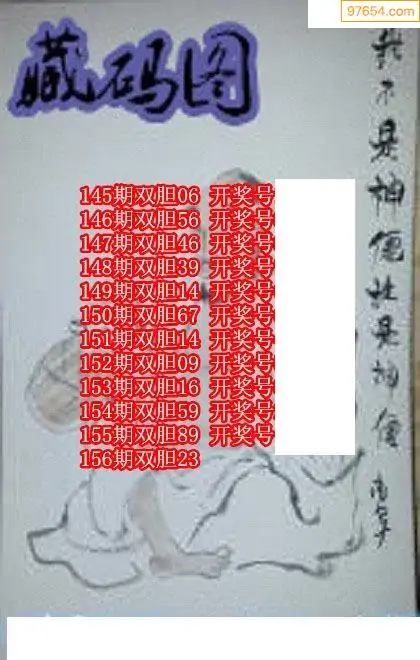 97654.com
藏码图
我不是神但她是神僊
145期双胆06 开奖号
146期双胆56 开奖号
147期双胆46 开奖号
148期双胆39 开奖号
149期双胆14 开奖号
150期双胆67 开奖号
151期双胆14 开奖号
152期双胆09 开奖号
153期双胆16 开奖号
154期双胆59 开奖号
155期双胆89 开奖号
156期双胆23